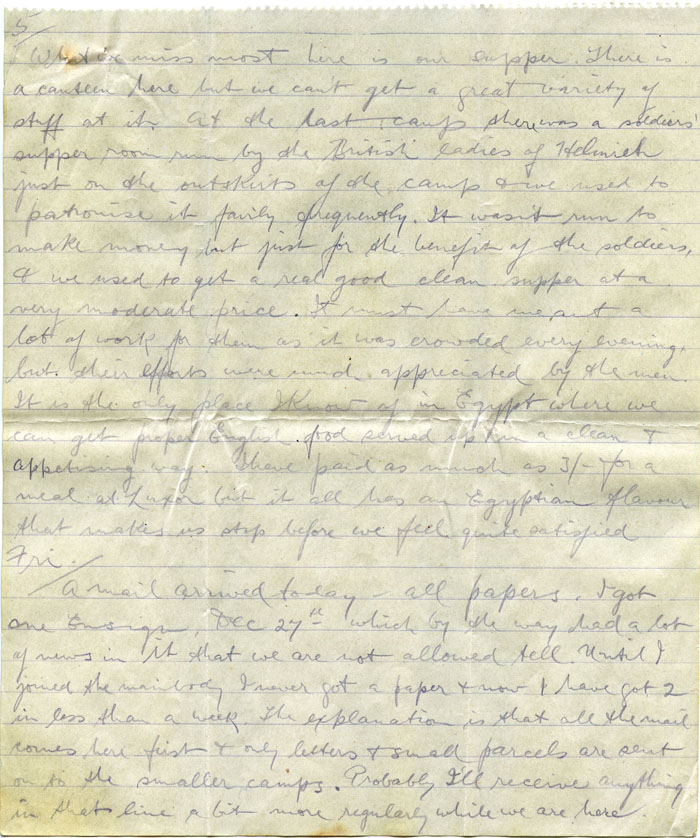 5/
What we miss most here is our supper. There is
a canteen here but we can't get a great variety of
stuff at it. At the last camp there was a soldiers'
supper room run by the British ladies of Helmieh
just on the outskirts of the camp & we used to
patronise it fairly frequently. It wasn't run to
make money but just for the benefit of the soldiers,
& we used to get a real good clean supper at a
very moderate price. It must have meant a
lot of work for them as it was crowded every evening,
but their efforts were much appreciated by the men.
It is the only place I know of in Egypt where we
can get proper English food served up in a clean &
appetising way. I have paid as much as 3/- for a
meal at Luxor but it all has an Egyptian flavour
that makes us stop before we feel quite satisfied
Fri./
A mail arrived today - all papers. I got
one Ensign, Dec 27th which by the way had a lot
of news in it that we are not allowed tell. Until I
joined the mainbody I never got a paper & now I have got 2
in less than a week. The explanation is that all the mail
comes here first & only letters & small parcels are sent
on to the smaller camps. Probably I'll receive anything
in that line a bit more regularly while we are here.